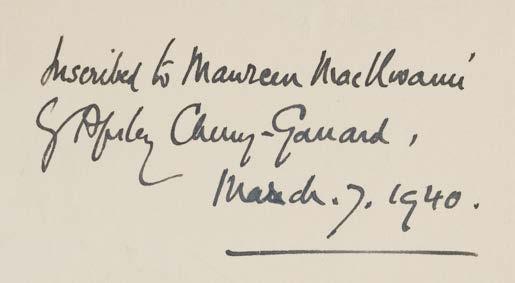 Inscribed to Maureen
by Apsley Cherry-Garrard,
March. 7. 1940.